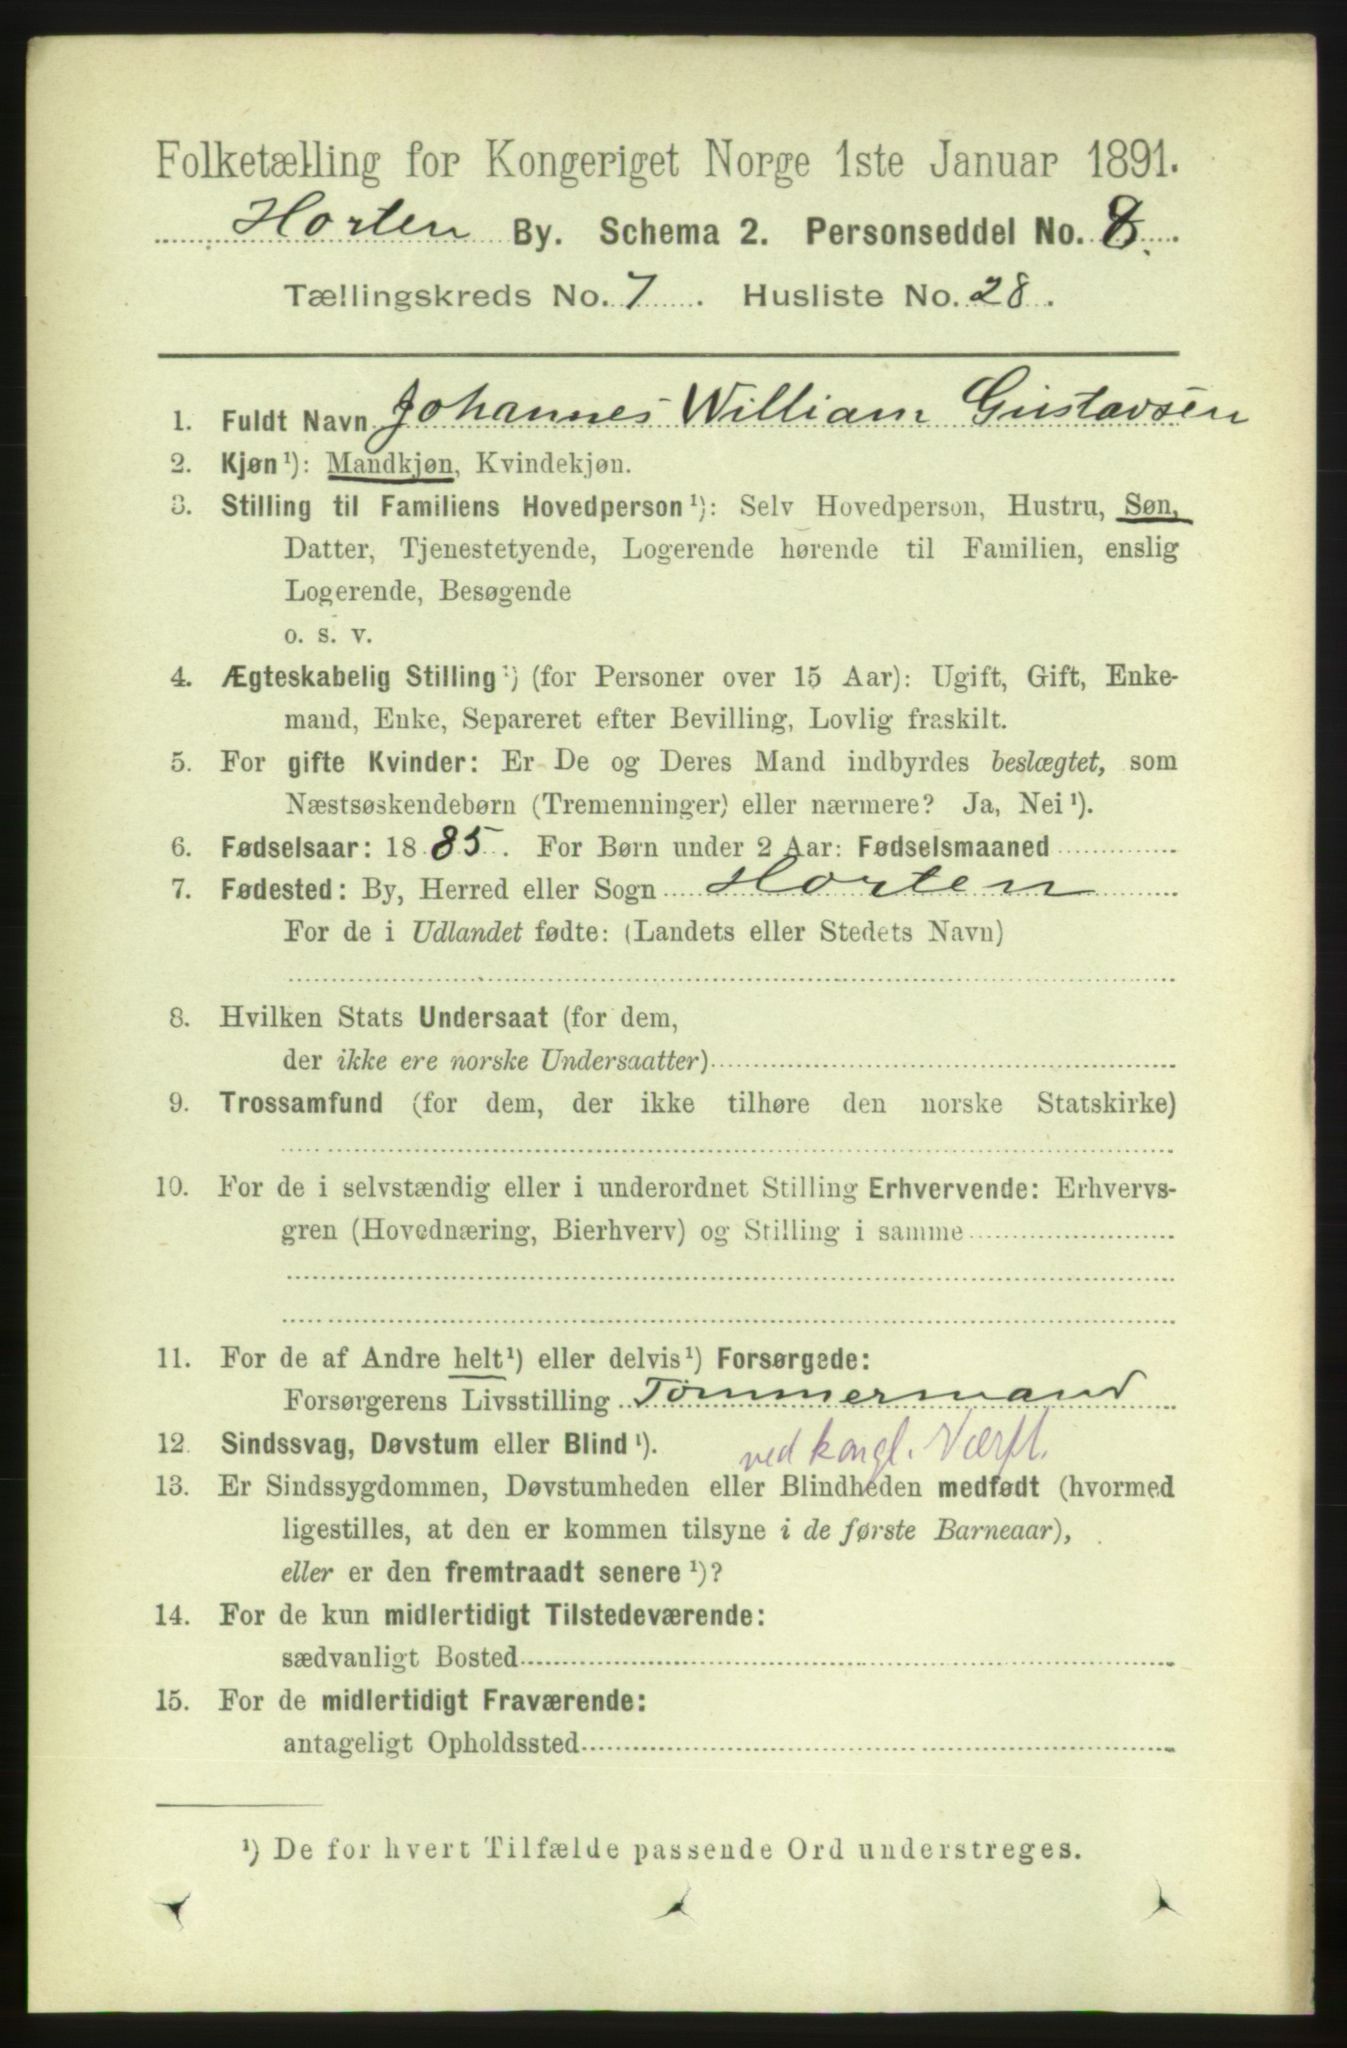 Folketælling for Kongeriget Norge 1ste Januar 1891.
Horten By. Schema 2. Personseddel No. 8.
Tællingskreds No. 7. Husliste No. 28.
1. Fuldt Navn Johannes William Gustavsen
2. Kjøn¹): Mandkjøn, Kvindekjøn.
3. Stilling til Familiens Hovedperson¹): Selv Hovedperson, Hustru, Søn,
Datter, Tjenestetyende, Logerende hørende til Familien, enslig
Logerende, Besøgende
o. s. v.
4. Ægteskabelig Stilling¹) (for Personer over 15 Aar): Ugift, Gift, Enke-
mand, Enke, Separeret efter Bevilling, Lovlig fraskilt.
5. For gifte Kvinder: Er De og Deres Mand indbyrdes beslægtet, som
Næstsøskendebørn (Tremenninger) eller nærmere? Ja, Nei¹).
6. Fødselsaar: 1885. For Børn under 2 Aar: Fødselsmaaned
7. Fødested: By, Herred eller Sogn Horten
For de i Udlandet fødte: (Landets eller Stedets Navn)
8. Hvilken Stats Undersaat (for dem,
der ikke ere norske Undersaatter)
9. Trossamfund (for dem, der ikke tilhøre den norske Statskirke)
10. For de i selvstændig eller i underordnet Stilling Erhvervende: Erhvervs-
gren (Hovednæring, Bierhverv) og Stilling i samme
11. For de af Andre helt¹) eller delvis¹) Forsørgede:
Forsørgerens Livsstilling Tømmermand
12. Sindssvag, Døvstum eller Blind¹). ved kongl. Værft.
13. Er Sindssygdommen, Døvstumheden eller Blindheden medfødt (hvormed
ligestilles, at den er kommen tilsyne i de første Barneaar),
eller er den fremtraadt senere¹)?
14. For de kun midlertidigt Tilstedeværende:
sædvanligt Bosted
15. For de midlertidigt Fraværende:
antageligt Opholdssted
¹) De for hvert Tilfælde passende Ord understreges.